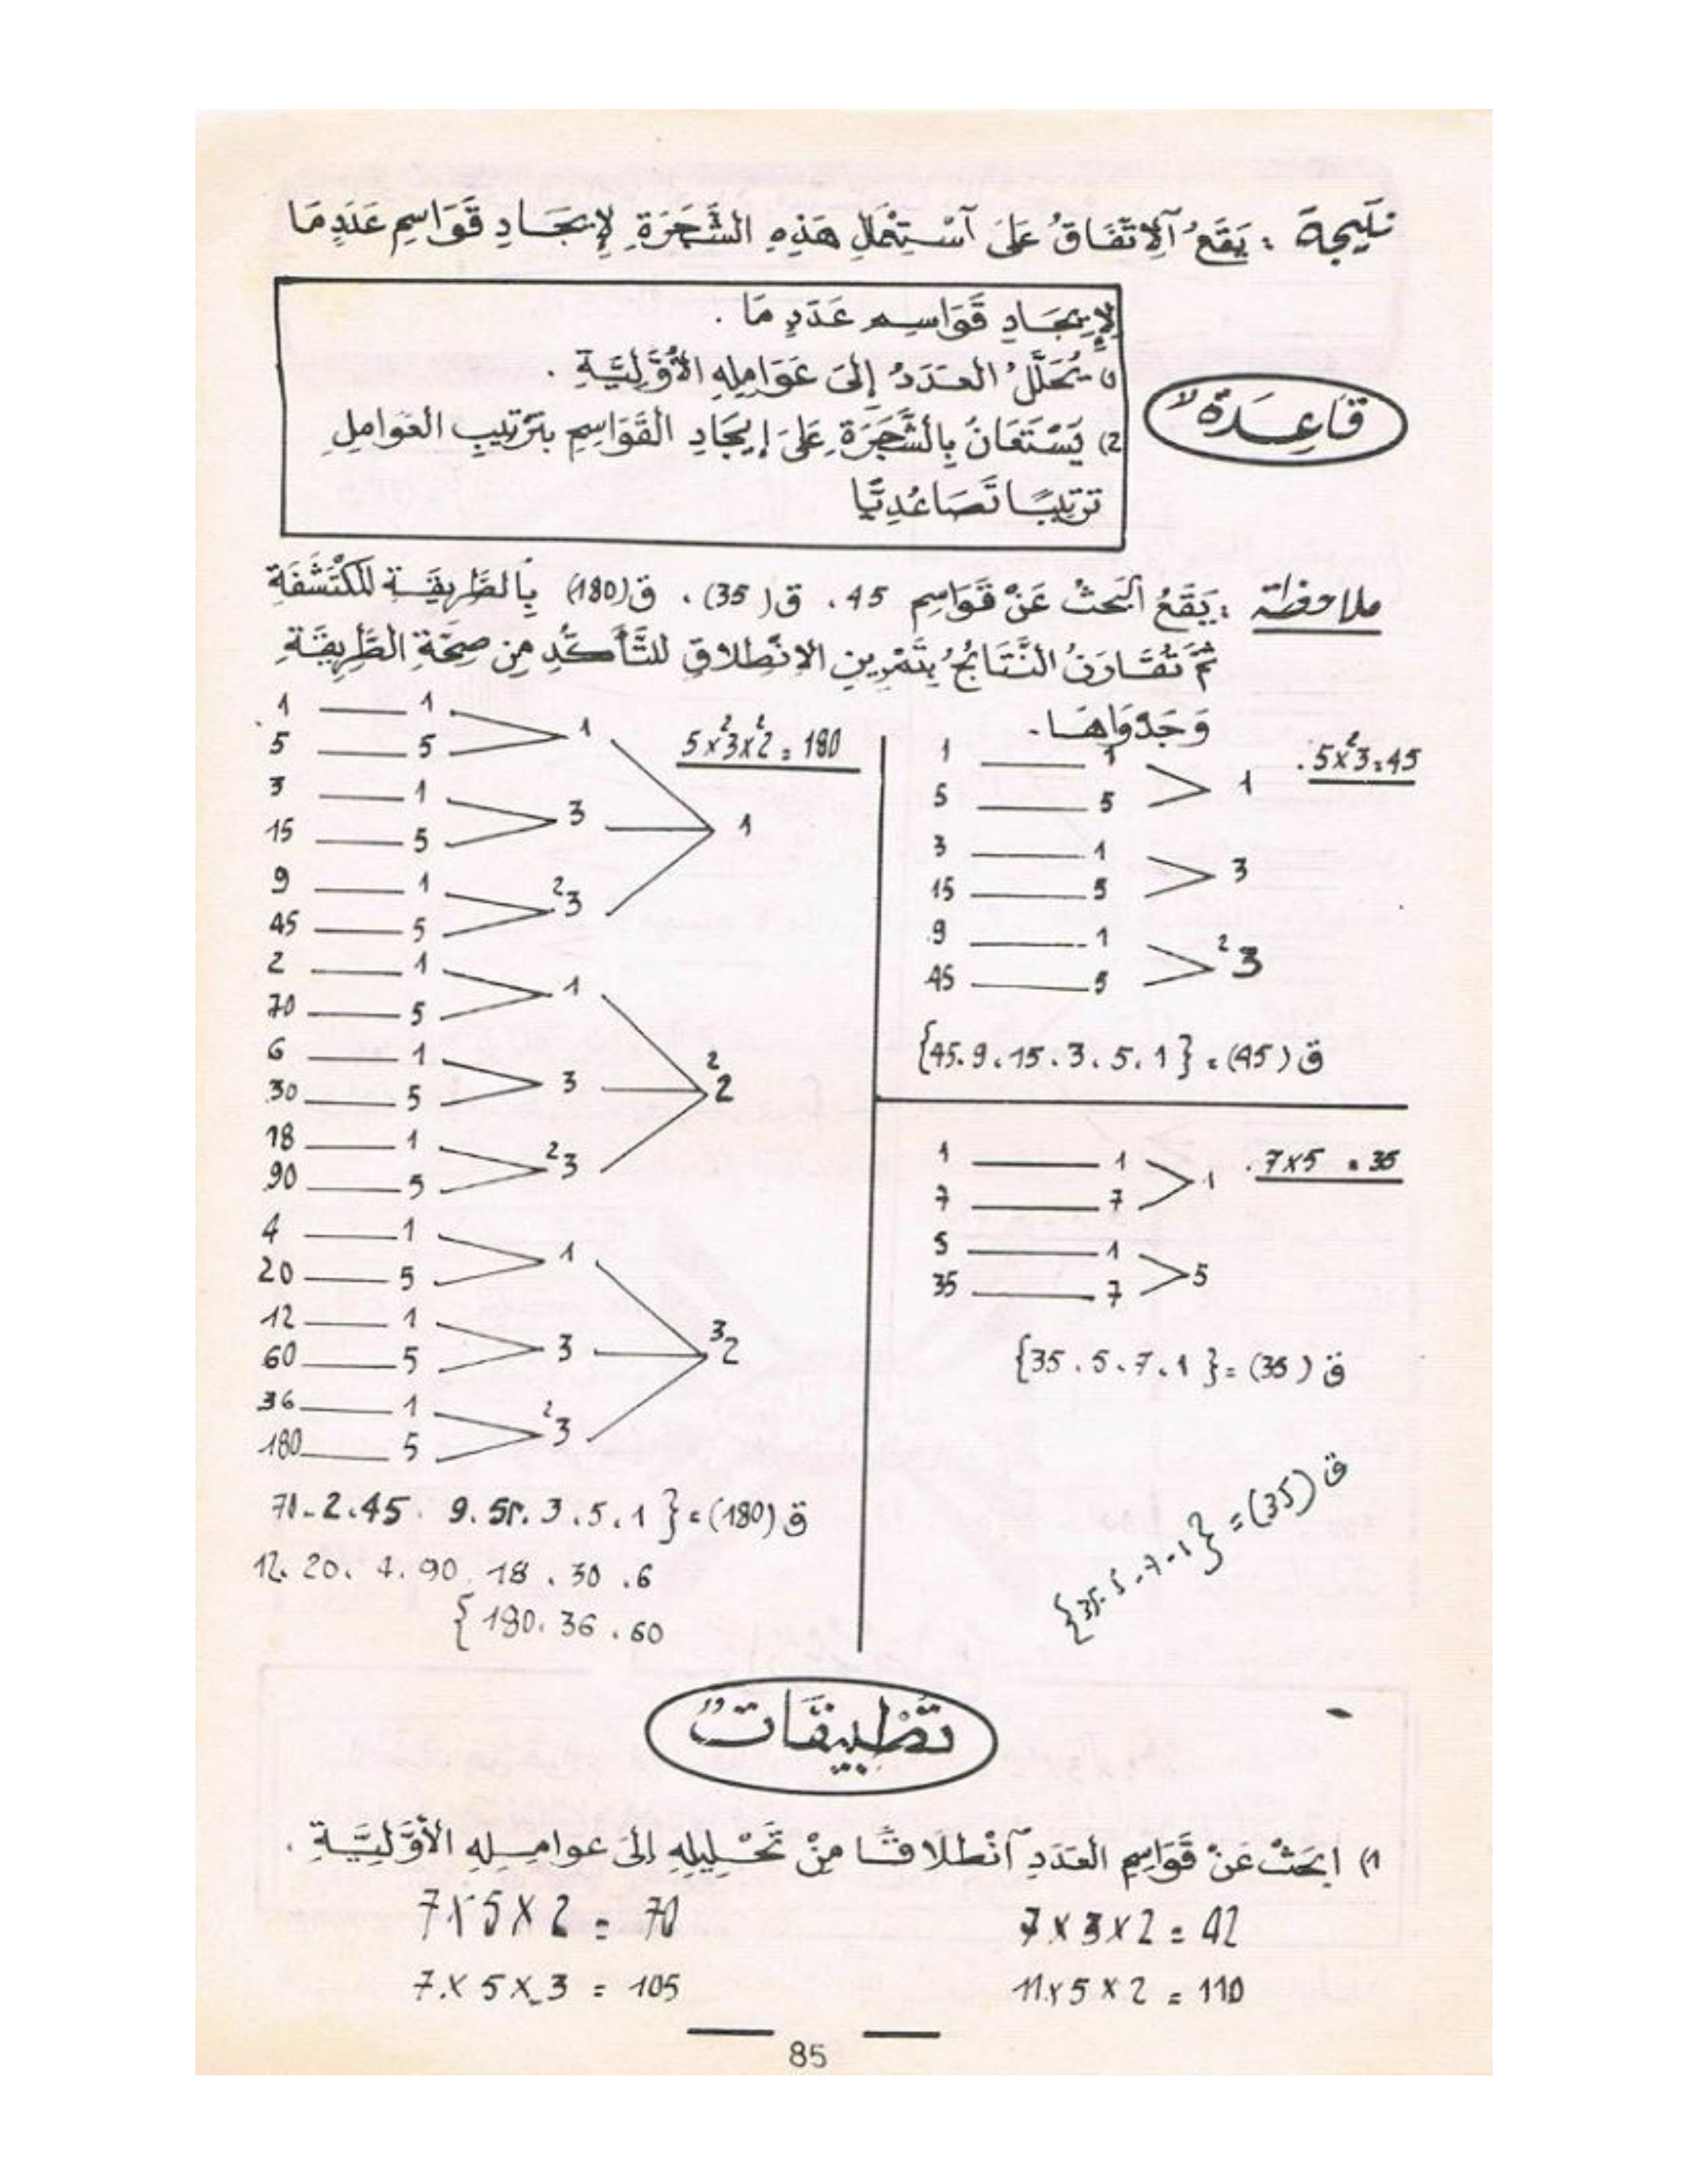 نتيجة : يَقَعُ آلِاتِّفَاقُ عَلَى آسْتِعْمَالِ هَذِهِ الشَّجَرَةِ لِإِيجَادِ قَوَاسِمِ عَدَدٍ مَا
لِإِيجَادِ قَوَاسِمِ عَدَدٍ مَا .
1) يُحَلَّلُ العَدَدُ إِلَى عَوَامِلِهِ الأَوَّلِيَّةِ .
قَاعِدَةٌ
2) يُسْتَعَانُ بِالشَّجَرَةِ عَلَى إِيجَادِ القَوَاسِمِ بِتَرْتِيبِ العَوَامِلِ
تَرْتِيبًا تَصَاعُدِيًّا
ملاحظة : يَقَعُ البَحْثُ عَنْ قَوَاسِمِ 45 . ق (35) . ق (180) بِالطَّرِيقَةِ المُكْتَشَفَةِ
ثُمَّ تُقَارَنُ النَّتَائِجُ بِتَمْرِينِ الانْطِلاقِ لِلتَّأَكُّدِ مِن صِحَّةِ الطَّرِيقَةِ
وَجَدْوَاهَا .
45 = 3² × 5 .
1 1 1
5 5
3 1 3
15 5
9 1 3²
45 5
ق (45) = {1 . 5 . 3 . 15 . 9 . 45}
35 = 5 × 7 .
1 1 1
7 7
5 1 5
35 7
ق (35) = {1 . 7 . 5 . 35}
ق (35) = {1 - 7 - 5 . 35}
180 = 2² × 3² × 5
1 1 1
5 5
3 1 3 1
15 5
9 1 3²
45 5
2 1 1
70 5
6 1 3 2²
30 5
18 1 3²
90 5
4 1 1
20 5
12 1 3 2³
60 5
36 1 3²
180 5
ق (180) = {1 . 5 . 3 . 9 . 45 . 2 - 70
6 . 30 . 18 . 90 . 4 . 20 . 12
60 . 36 . 180}
تطبيقات
1) ابْحَثْ عَنْ قَوَاسِمِ العَدَدِ آنْطِلَاقًا مِنْ تَحْلِيلِهِ إِلَى عوامِلِهِ الأَوَّلِيَّةِ .
42 = 2 × 3 × 7 70 = 2 × 5 × 7
110 = 2 × 5 × 11 105 = 3 × 5 × 7
85